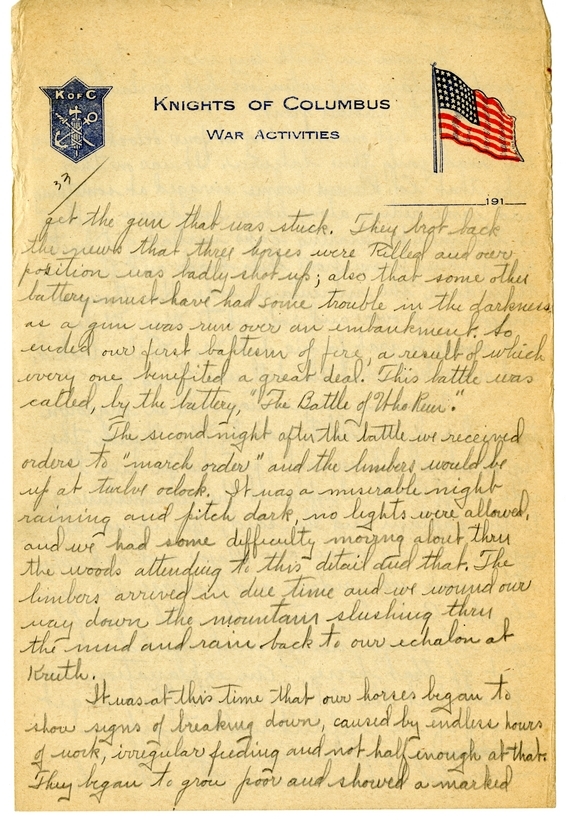 K of C
KNIGHTS OF COLUMBUS
WAR ACTIVITIES
33
191
get the gun that was stuck. They brot back
the news that three horses were killed and our
position was badly shot up; also that some other
battery must have had some trouble in the darkness
as a gun was run over an imbankment. So
ended our first baptism of fire, a result of which
every one benifited a great deal. This battle was
called, by the battery, "The Battle of Who Run".
The second night after the battle we received
orders to "march order" and the limbers would be
up at twelve oclock. It was a miserable night
raining and pitch dark, no lights were allowed,
and we had some difficulty moving about thru
the woods attending to this detail and that. The
limbers arrived in due time and we wound our
way down the mountain slushing thru
the mud and rain back to our echalon at
Kruth.
It was at this time that our horses began to
show signs of breaking down, caused by endless hours
of work, irregular feeding and not half enough at that.
They began to grow poor and showed a marked